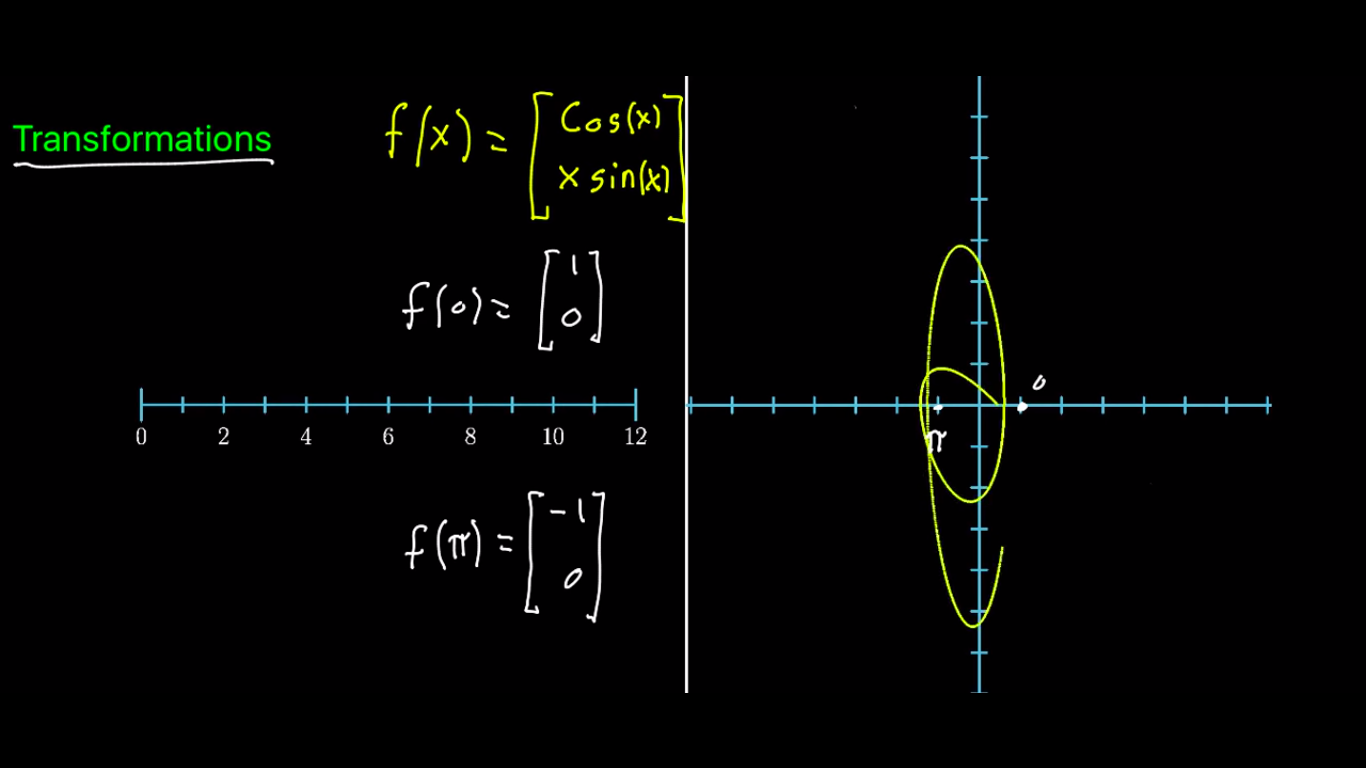 Transformations
f(x) = [cos(x)
x sin(x)]
f(0) = [1
0]
0 2 4 6 8 10 12
f(π) = [-1
0]
0
π